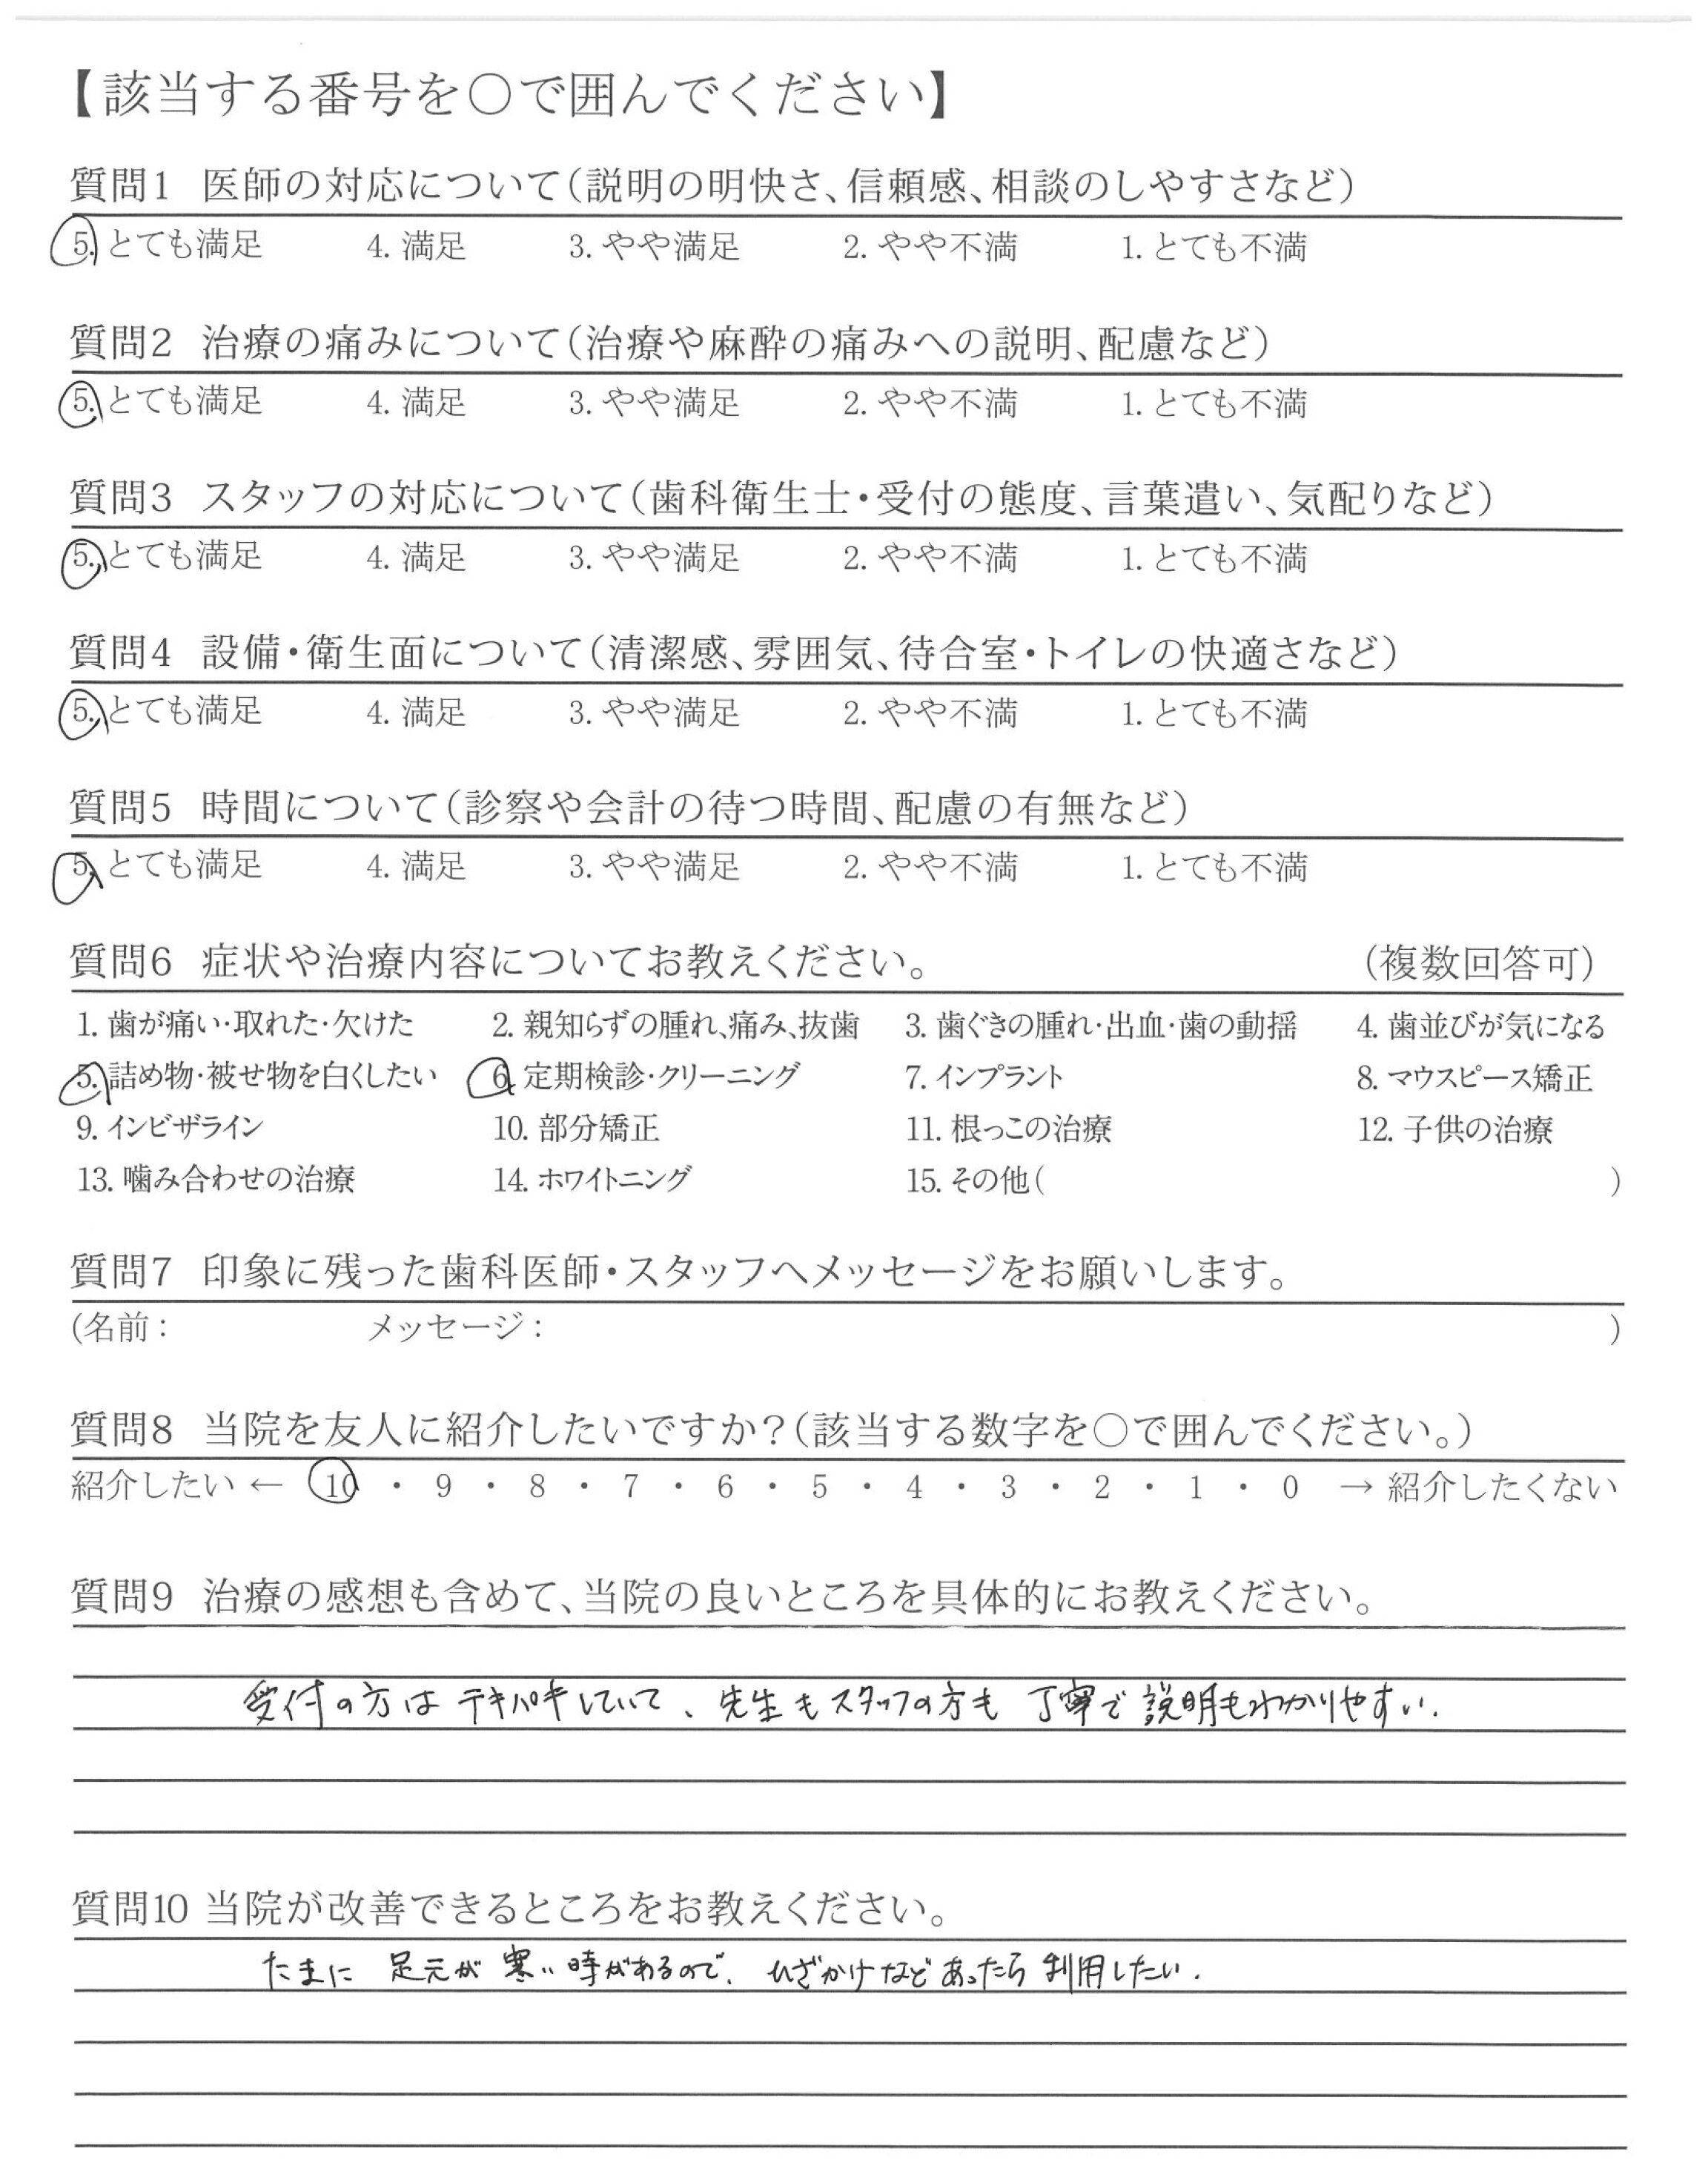 【該当する番号を○で囲んでください】
質問1 医師の対応について（説明の明快さ、信頼感、相談のしやすさなど）
5. とても満足 4. 満足 3. やや満足 2. やや不満 1. とても不満
質問2 治療の痛みについて（治療や麻酔の痛みへの説明、配慮など）
5. とても満足 4. 満足 3. やや満足 2. やや不満 1. とても不満
質問3 スタッフの対応について（歯科衛生士・受付の態度、言葉遣い、気配りなど）
5. とても満足 4. 満足 3. やや満足 2. やや不満 1. とても不満
質問4 設備・衛生面について（清潔感、雰囲気、待合室・トイレの快適さなど）
5. とても満足 4. 満足 3. やや満足 2. やや不満 1. とても不満
質問5 時間について（診察や会計の待つ時間、配慮の有無など）
5. とても満足 4. 満足 3. やや満足 2. やや不満 1. とても不満
質問6 症状や治療内容についてお教えください。 （複数回答可）
1. 歯が痛い・取れた・欠けた 2. 親知らずの腫れ、痛み、抜歯 3. 歯ぐきの腫れ・出血・歯の動揺 4. 歯並びが気になる
5. 詰め物・被せ物を白くしたい 6. 定期検診・クリーニング 7. インプラント 8. マウスピース矯正
9. インビザライン 10. 部分矯正 11. 根っこの治療 12. 子供の治療
13. 噛み合わせの治療 14. ホワイトニング 15. その他（ ）
質問7 印象に残った歯科医師・スタッフへメッセージをお願いします。
（名前： メッセージ： ）
質問8 当院を友人に紹介したいですか？（該当する数字を○で囲んでください。）
紹介したい ← 10 ・ 9 ・ 8 ・ 7 ・ 6 ・ 5 ・ 4 ・ 3 ・ 2 ・ 1 ・ 0 → 紹介したくない
質問9 治療の感想も含めて、当院の良いところを具体的にお教えください。
受付の方はテキパキしていて、先生もスタッフの方も丁寧で説明もわかりやすい.
質問10 当院が改善できるところをお教えください。
たまに足元が寒い時があるので、ひざかけなどあったら利用したい.